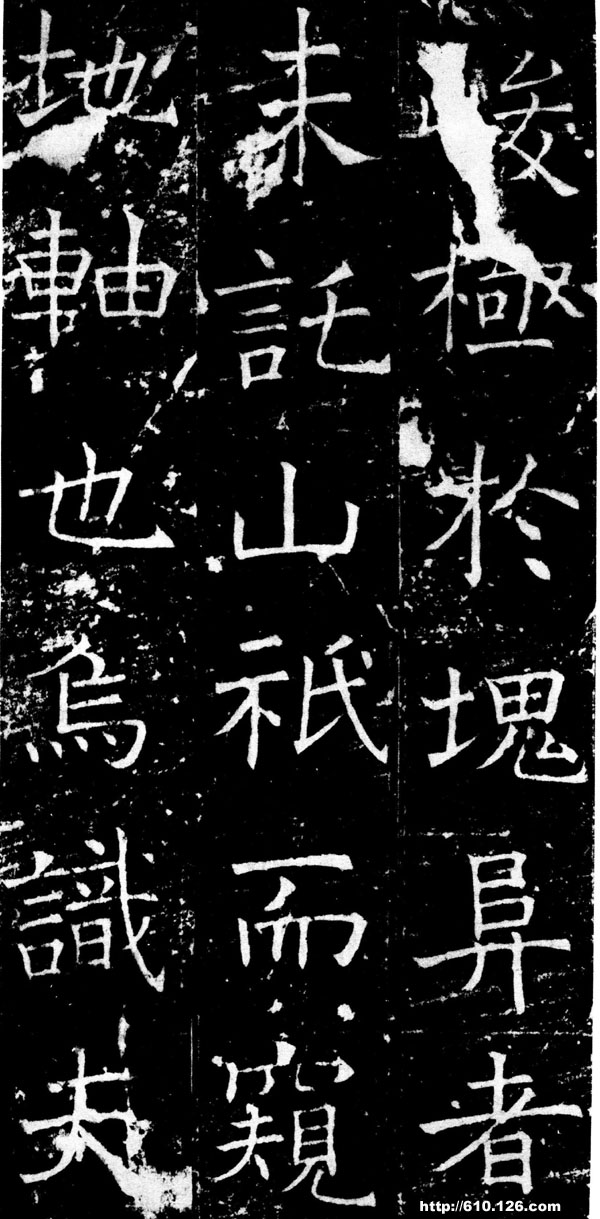 峻極於塊阜者
未託山祇而窺
地軸也烏識夫
http://610.126.com